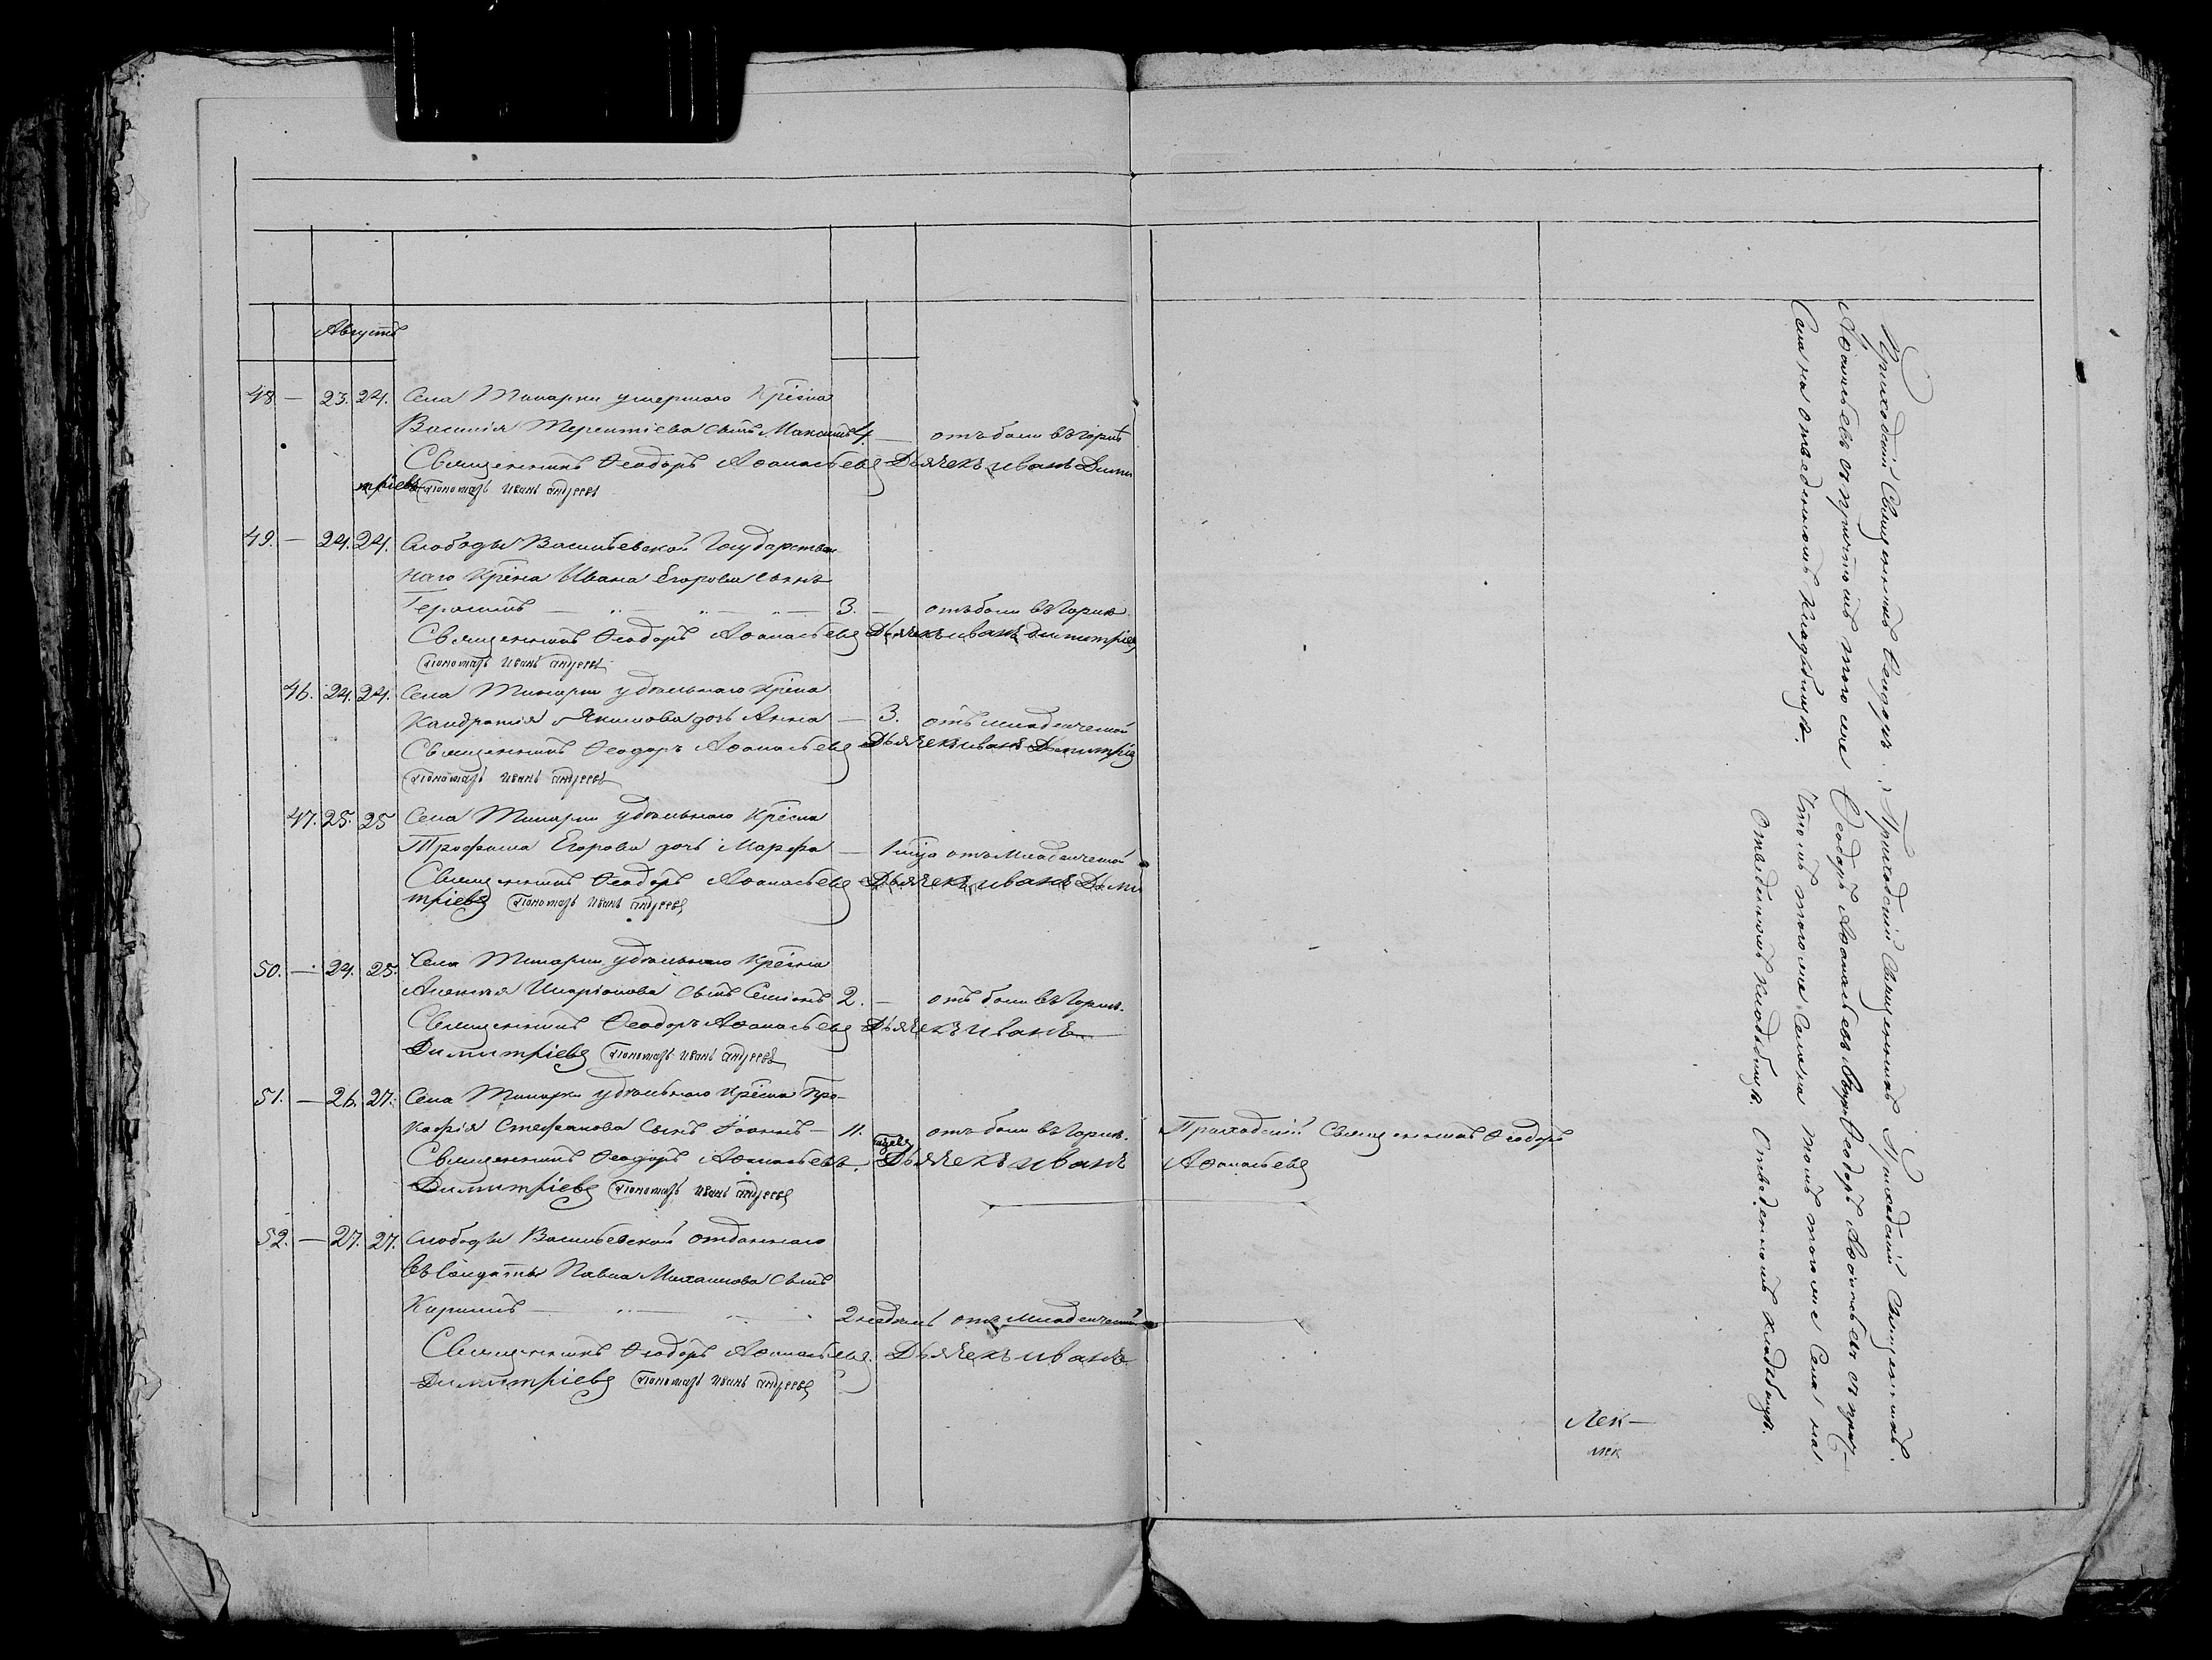 Августъ
48. — 23. 24. Села Тинарки умершаго Крѣс͠на
Василія Терентіева сынъ Максимъ 4. — отъ боли въ горлѣ
Священникъ Ѳеодоръ Аѳанасьевъ Дьячекъ иванъ Дими
тріевъ Пономарь Иванъ Андреевъ
49. — 24. 24. Слободы Васильевской Государствен
наго Крѣс͠на Ивана Егорова сынъ
Герасимъ — „ — „ — „ — 3. — отъ боли въ горлѣ
Священникъ Ѳеодоръ Аѳанасьевъ Дьячекъ иванъ димитріевъ
Пономарь Иванъ Андреевъ
46. 24. 24. Села Тинарки удѣльнаго Крѣс͠на
Кандратія Якимова дочь Анна — 3. отъ младенческой
Священникъ Ѳеодоръ Аѳанасьевъ Дьячекъ иванъ Димитріев
Пономарь Иванъ Андреевъ
47. 25. 25 Села Тинарки удѣльнаго Крѣс͠на
Трофима Егорова дочь Марфа — 1 отъ младенческой
Священникъ Ѳеодоръ Аѳанасьевъ Дьячекъ иванъ Дими
тріевъ Пономарь Иванъ Андреевъ
50. — 24. 25. Села Тинарки удѣльнаго Крѣс͠на
Алексѣя Иларіонова сынъ Семіонъ 2. — отъ боли въ горлѣ.
Священникъ Ѳеодоръ Аѳанасьевъ Дьячекъ иванъ
Димитріевъ Пономарь Иванъ Андреевъ
51. — 26. 27. Села Тинарки удѣльнаго Крѣс͠на Про-
кофія Стефанова сынъ Іоаннъ — 11. отъ боли въ горлѣ.
Священникъ Ѳеодоръ Аѳанасьевъ. Дьячекъ иванъ
Димитріевъ Пономарь Иванъ Андреевъ
52. — 27. 27. Слободы Васильевской отданнаго
въ солдаты Павла Михаилова сынъ
Кирилъ — „ — 2 недѣль отъ младенческой
Священникъ Ѳеодоръ Аѳанасьевъ. Дьячекъ иванъ
Димитріевъ Пономарь Иванъ Андреевъ
Приходскій Священникъ Ѳеодоръ
Аѳанасьевъ
Приходскій Священникъ Ѳеодоръ
Аѳанасьевъ съ причтомъ того села
на отведенномъ Кладбищѣ.
Приходскій Священникъ
Ѳеодоръ Аѳанасьевъ
томъ того же Села на
отведенномъ Кладбищѣ.
Приходскій Священникъ
Ѳеодоръ Аѳанасьевъ съ прич-
томъ того же Села на
отведенномъ кладбищѣ.